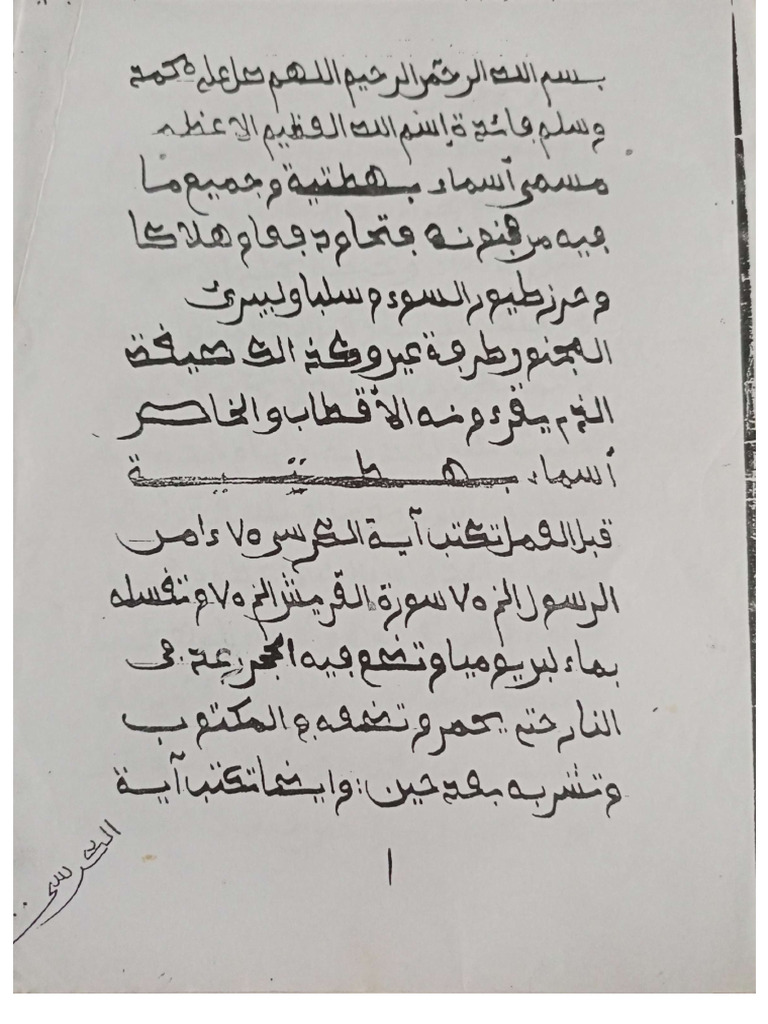 بسم الله الرحمن الرحيم اللهم صل على محمد
وسلم فائدة إسم الله العظيم الاعظم
مسمى أسماء بهطتية و جميع ما
فيه من فنونه فتحا ودفعا وهلاكا
وحرز طيور السوء وسلبا ولبسرئ
المجنون طرفة عين وكذالك صيفة
الذي يقرءونه الأقطاب والخاصر
أسماء بهطتيـة
قبل العمل تكتب آية الكرسي ٧٥ ءامن
الرسول الخ ٧٥ سورة القريش الخ ٧٥ وتغسله
بماء لبر يوميا وتضع فيه الحجر عة فى
النار حتى يحمر وتضعه في المكتوب
وتشربه بعد حين : وايضا تكتب آية
١
الكرسى